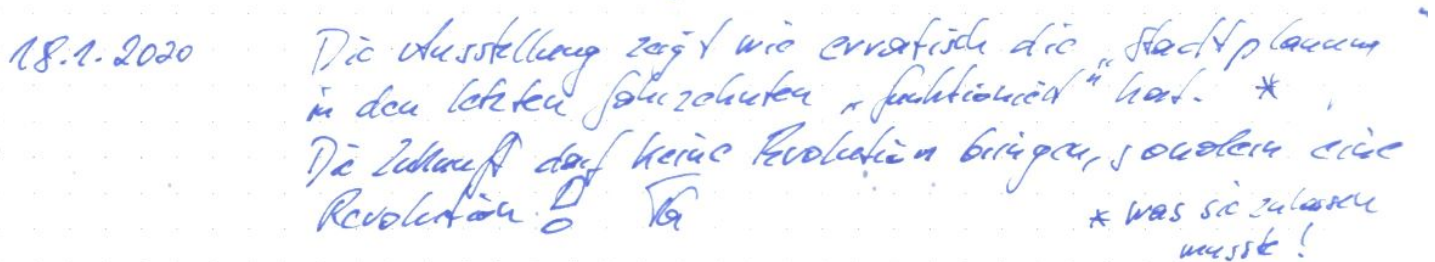 18.1.2020 Die Ausstellung zeigt wie erratisch die "Stadtplanung"
in den letzten Jahrzehnten "funktioniert" hat. *
Die Zukunft darf keine Evolution bringen, sondern eine
Revolution!
* was sie zulassen
musste!